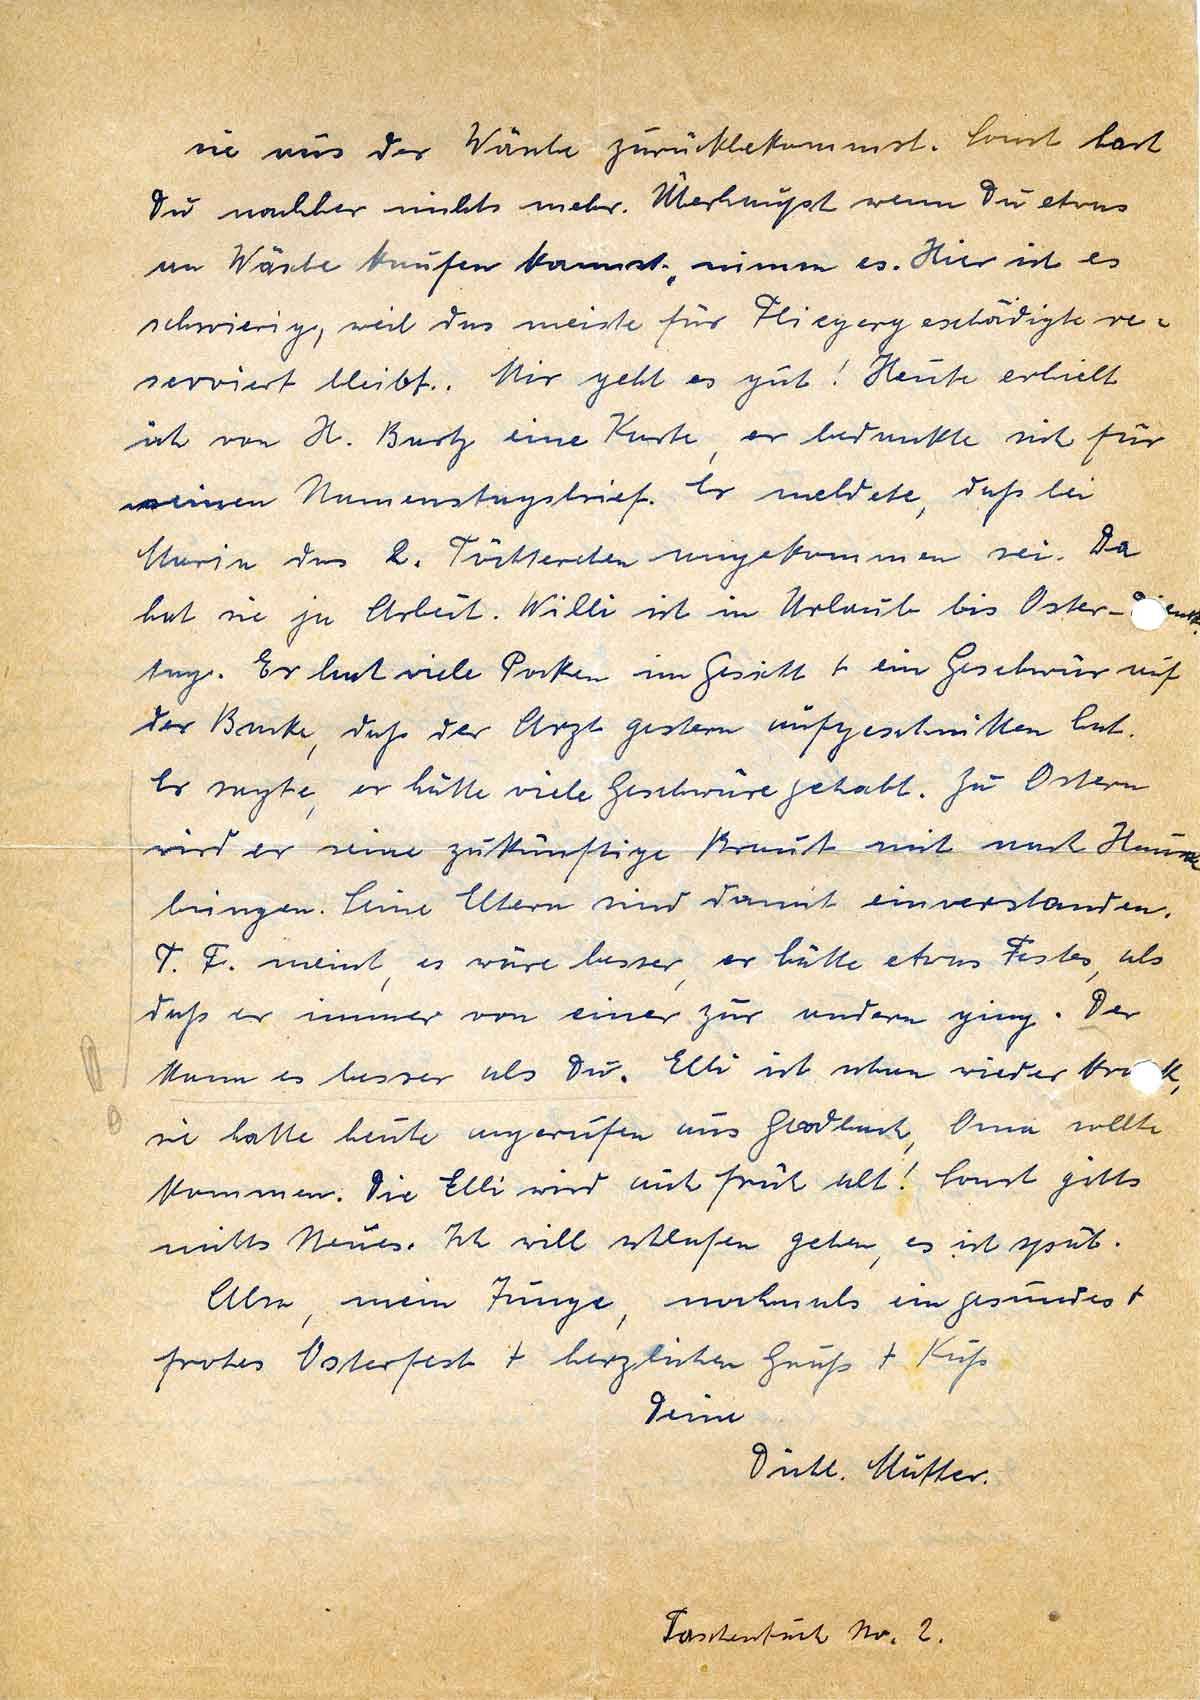 sie aus der Wäsche zurückbekommst. Sonst hast
Du nachher nichts mehr. Überhaupt wenn Du etwas
an Wäsche kaufen kannst, nimm es. Hier ist es
schwierig, weil das meiste für Fliegergeschädigte re-
serviert bleibt. Mir geht es gut! Heute erhielt
ich von H. Bartz eine Karte, er bedankte sich für
seinen Namenstagsbrief. Er meldete, daß bei
Maria das 2. Töchterchen angekommen sei. Da
hat sie ja Arbeit. Willi ist in Urlaub bis Oster-Dienst
tag. Er hat viele Pocken im Gesicht + ein Geschwür auf
der Backe, daß der Arzt gestern aufgeschnitten hat.
Er sagte, er hätte viele Geschwüre gehabt. Zu Ostern
wird er seine zukünftige Braut mit nach Hause
bringen. Seine Eltern sind damit einverstanden.
T. F. meint, es wäre besser, er hätte etwas Festes, als
daß er immer von einer zur andern ging. Der
kann es besser als Du. Elli ist schon wieder krank,
sie hatte heute angerufen aus Gladbach, Oma sollte
kommen. Die Elli wird auch früh alt! Sonst gibts
nichts Neues. Ich will schlafen gehen, es ist spät.
Also, mein Junge, nochmals ein gesundes +
frohes Osterfest + herzlichen Gruß + Kuß
Deine
Dichl. Mutter.
Taschentuch No. 2.